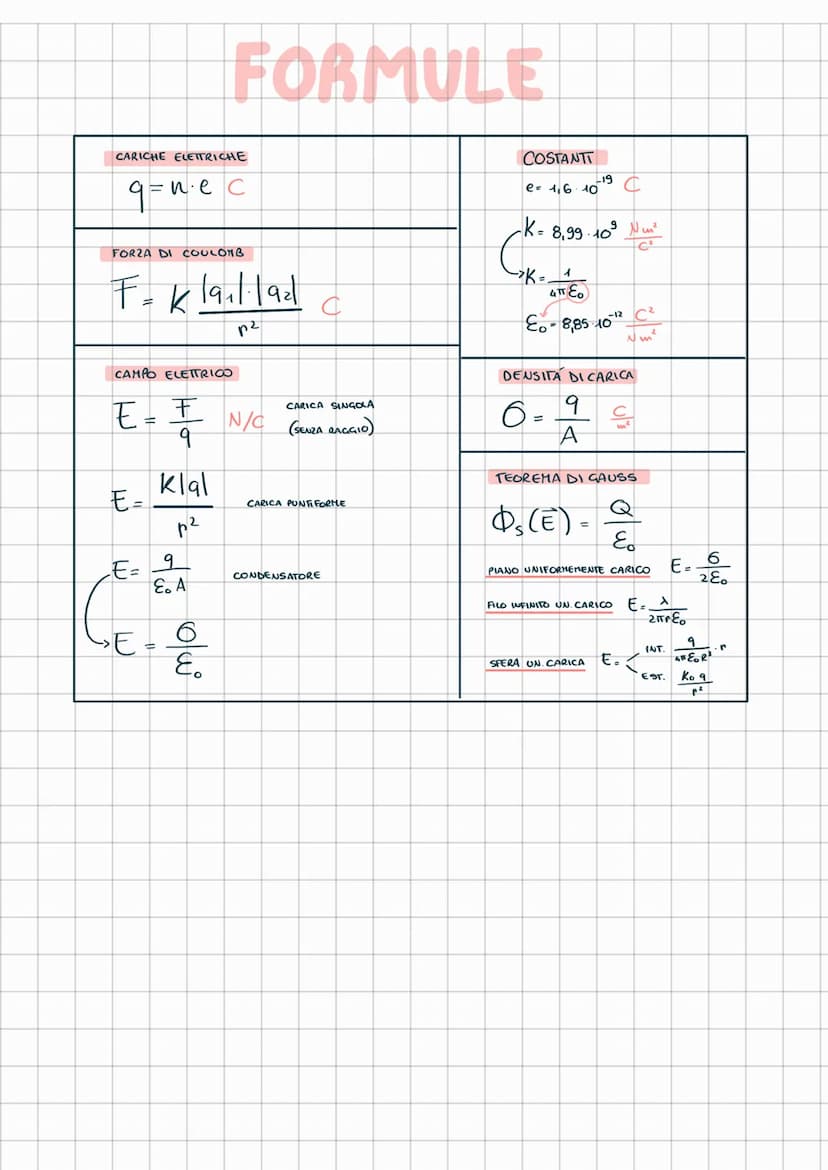 FORMULE
CARICHE ELETTRICHE
q = n·e C
FORZA DI COULOMB
F = K |q₁|·|q₂| / r² C
CAMPO ELETTRICO
E = F / q N/C CARICA SINGOLA
(SENZA RAGGIO)
E = K|q| / r² CARICA PUNTIFORME
E = q / ε₀ A CONDENSATORE
E = σ / ε₀
COSTANTI
e = 1,6 · 10⁻¹⁹ C
K = 8,99 · 10⁹ Nm² / C²
K = 1 / 4π ε₀
ε₀ = 8,85 · 10⁻¹² C² / Nm²
DENSITÁ DI CARICA
σ = q / A C / m²
TEOREMA DI GAUSS
Φs (E⃗) = Q / ε₀
PIANO UNIFORMEMENTE CARICO E = σ / 2ε₀
FILO INFINITO UN. CARICO E = λ / 2πrε₀
SFERA UN. CARICA E = < INT. q / 4πε₀R³ · r
EST. K₀ q / r²